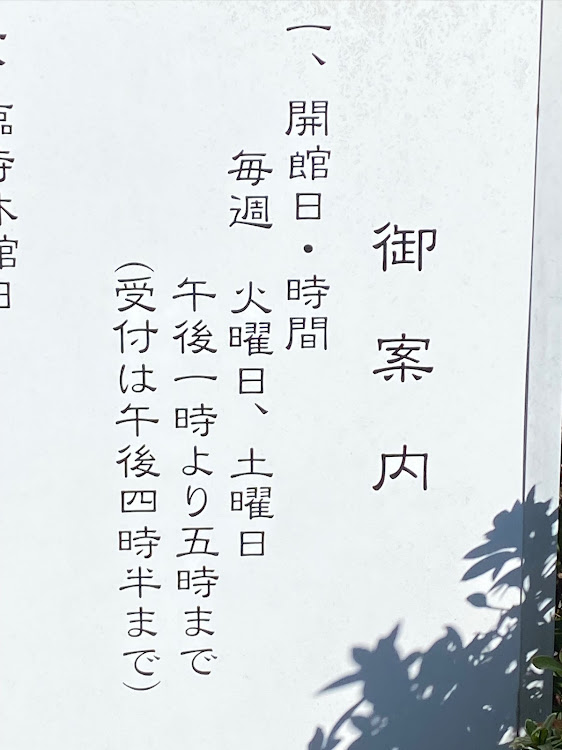 御案内
一、開館日・時間
毎週　火曜日、土曜日
午後一時より五時まで
（受付は午後四時半まで）
臨時休館日